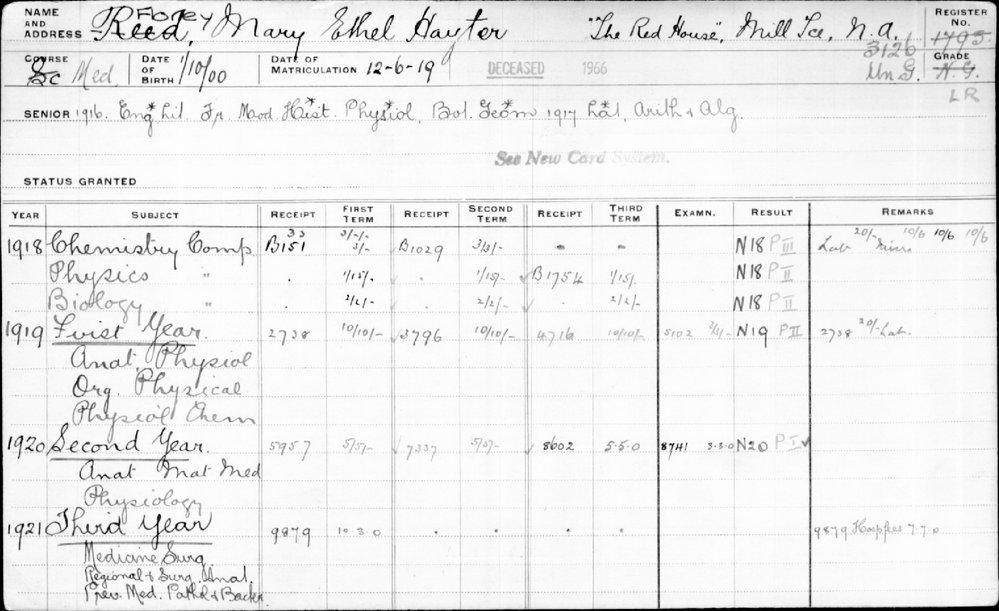 NAME AND ADDRESS FLOREY Reed, Mary Ethel Hayter "The Red House", Mill Tce, N.A. REGISTER No. 1795 3126
COURSE Sc Med DATE OF BIRTH 1/10/00 DATE OF MATRICULATION 12-6-19 DECEASED 1966 GRADE N.G. Un G.
LR
SENIOR 1916. Eng* Lit. Fr. Mod. Hist.* Physiol,* Bot. Geom* 1917 Lat, Arith & Alg.
See New Card System.
STATUS GRANTED
YEAR SUBJECT RECEIPT FIRST TERM RECEIPT SECOND TERM RECEIPT THIRD TERM EXAMN. RESULT REMARKS
1918 Chemistry Comp. B151 B1029 3/3/- " " N18 P III Lab 20/- 10/6 10/6 10/6
Physics " . 1/15/- . 1/15/- B1754 1/15/- N18 P II
Biology " . 2/2/- . 2/2/- . 2/2/- N18 P II
1919 First Year. 2738 10/10/- 3796 10/10/- 4716 10/10/- 5102 N19 P II 2738 20/- Lab.
Anat, Physiol
Org. Physical
Physiol Chem
1920 Second Year. 5957 5/5/- 7337 5/5/- 8602 5.5.0 8741 3.3.0 N20 P I
Anat Mat Med
Physiology
1921 Third Year 9879 10.3.0 . . . . 9879 Hospfees 7.7.0
Medicine Surg
Regional & Surg. Anat.
Prev. Med. Pathol & Backr